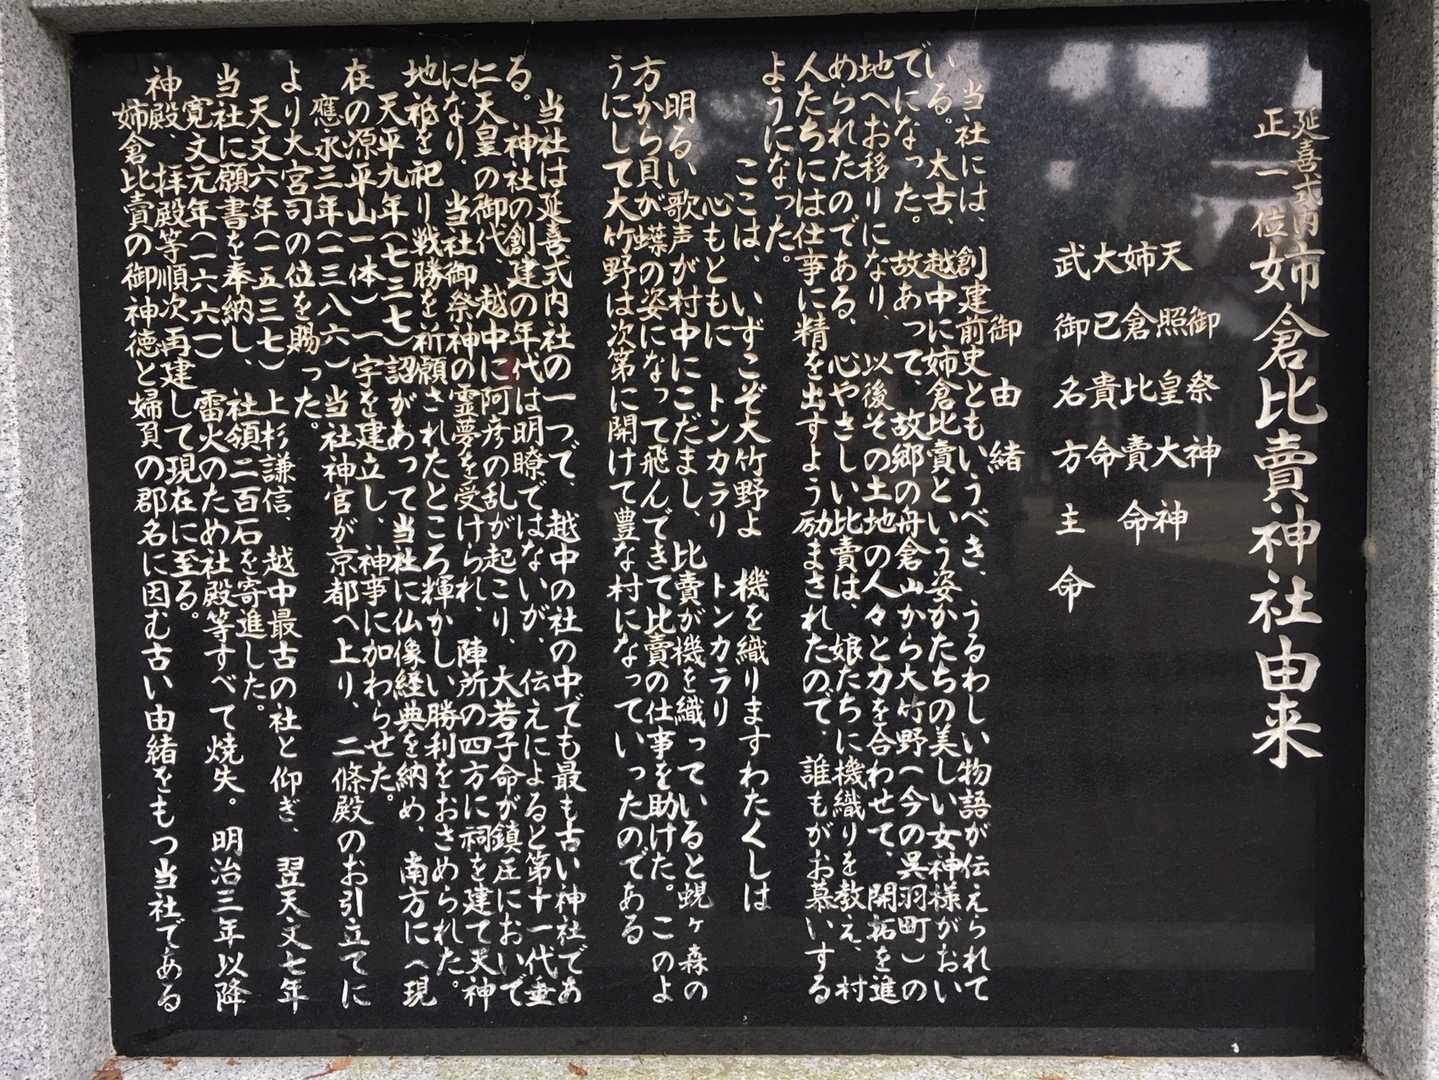 延喜式内
正一位
姉倉比賣神社由来
御祭神
天照皇大神
姉倉比賣命
大已貴命
武御名方主命
御由緒
当社には、創建前史ともいうべき、うるわしい物語が伝えられて
いる。太古、越中に姉倉比賣という姿かたちの美しい女神様がおい
でになった。故あって、故郷の舟倉山から大竹野(今の呉羽町)の
地へお移りになり、以後その土地の人々と力を合わせて、開拓を進
められたのである、心やさしい比賣は、娘たちに機織りを教え、村
人たちには仕事に精を出すよう励まされたので、誰もがお慕いする
ようになった。
ここは、いずこぞ大竹野よ 機を織りますわたくしは
心もともに トンカラリ トンカラリ
明るい歌声が村中にこだまし、比賣が機を織っていると蜆ヶ森の
方から貝が蝶の姿になって飛んできて比賣の仕事を助けた。このよ
うにして大竹野は次第に開けて豊な村になっていったのである
当社は延喜式内社の一つで、越中の社の中でも最も古い神社であ
る。神社の創建の年代は明瞭ではないが、伝えによると第十一代垂
仁天皇の御代、越中に阿彦の乱が起こり、大若子命が鎮圧においで
になり、当社御祭神の霊夢を受けられ、陣所の四方に祠を建て天神
地祗を祀り戦勝を祈願されたところ輝かしい勝利をおさめられた。
天平九年(七三七)詔があって当社に仏像経典を納め、南方に(現
在の源平山一体)一字を建立し、神事に加わらせた。
應永三年(一三八六)当社神官が京都へ上り、二條殿のお引立てに
より大宮司の位を賜った。
天文六年(一五三七)上杉謙信、越中最古の社と仰ぎ、翌天文七年
当社に願書を奉納し、社領二百石を寄進した。
寛文元年(一六六一)雷火のため社殿等すべて焼失。明治三年以降
神殿、拝殿等順次再建して現在に至る。
姉倉比賣の御神徳と婦負の郡名に因む古い由緒をもつ当社である